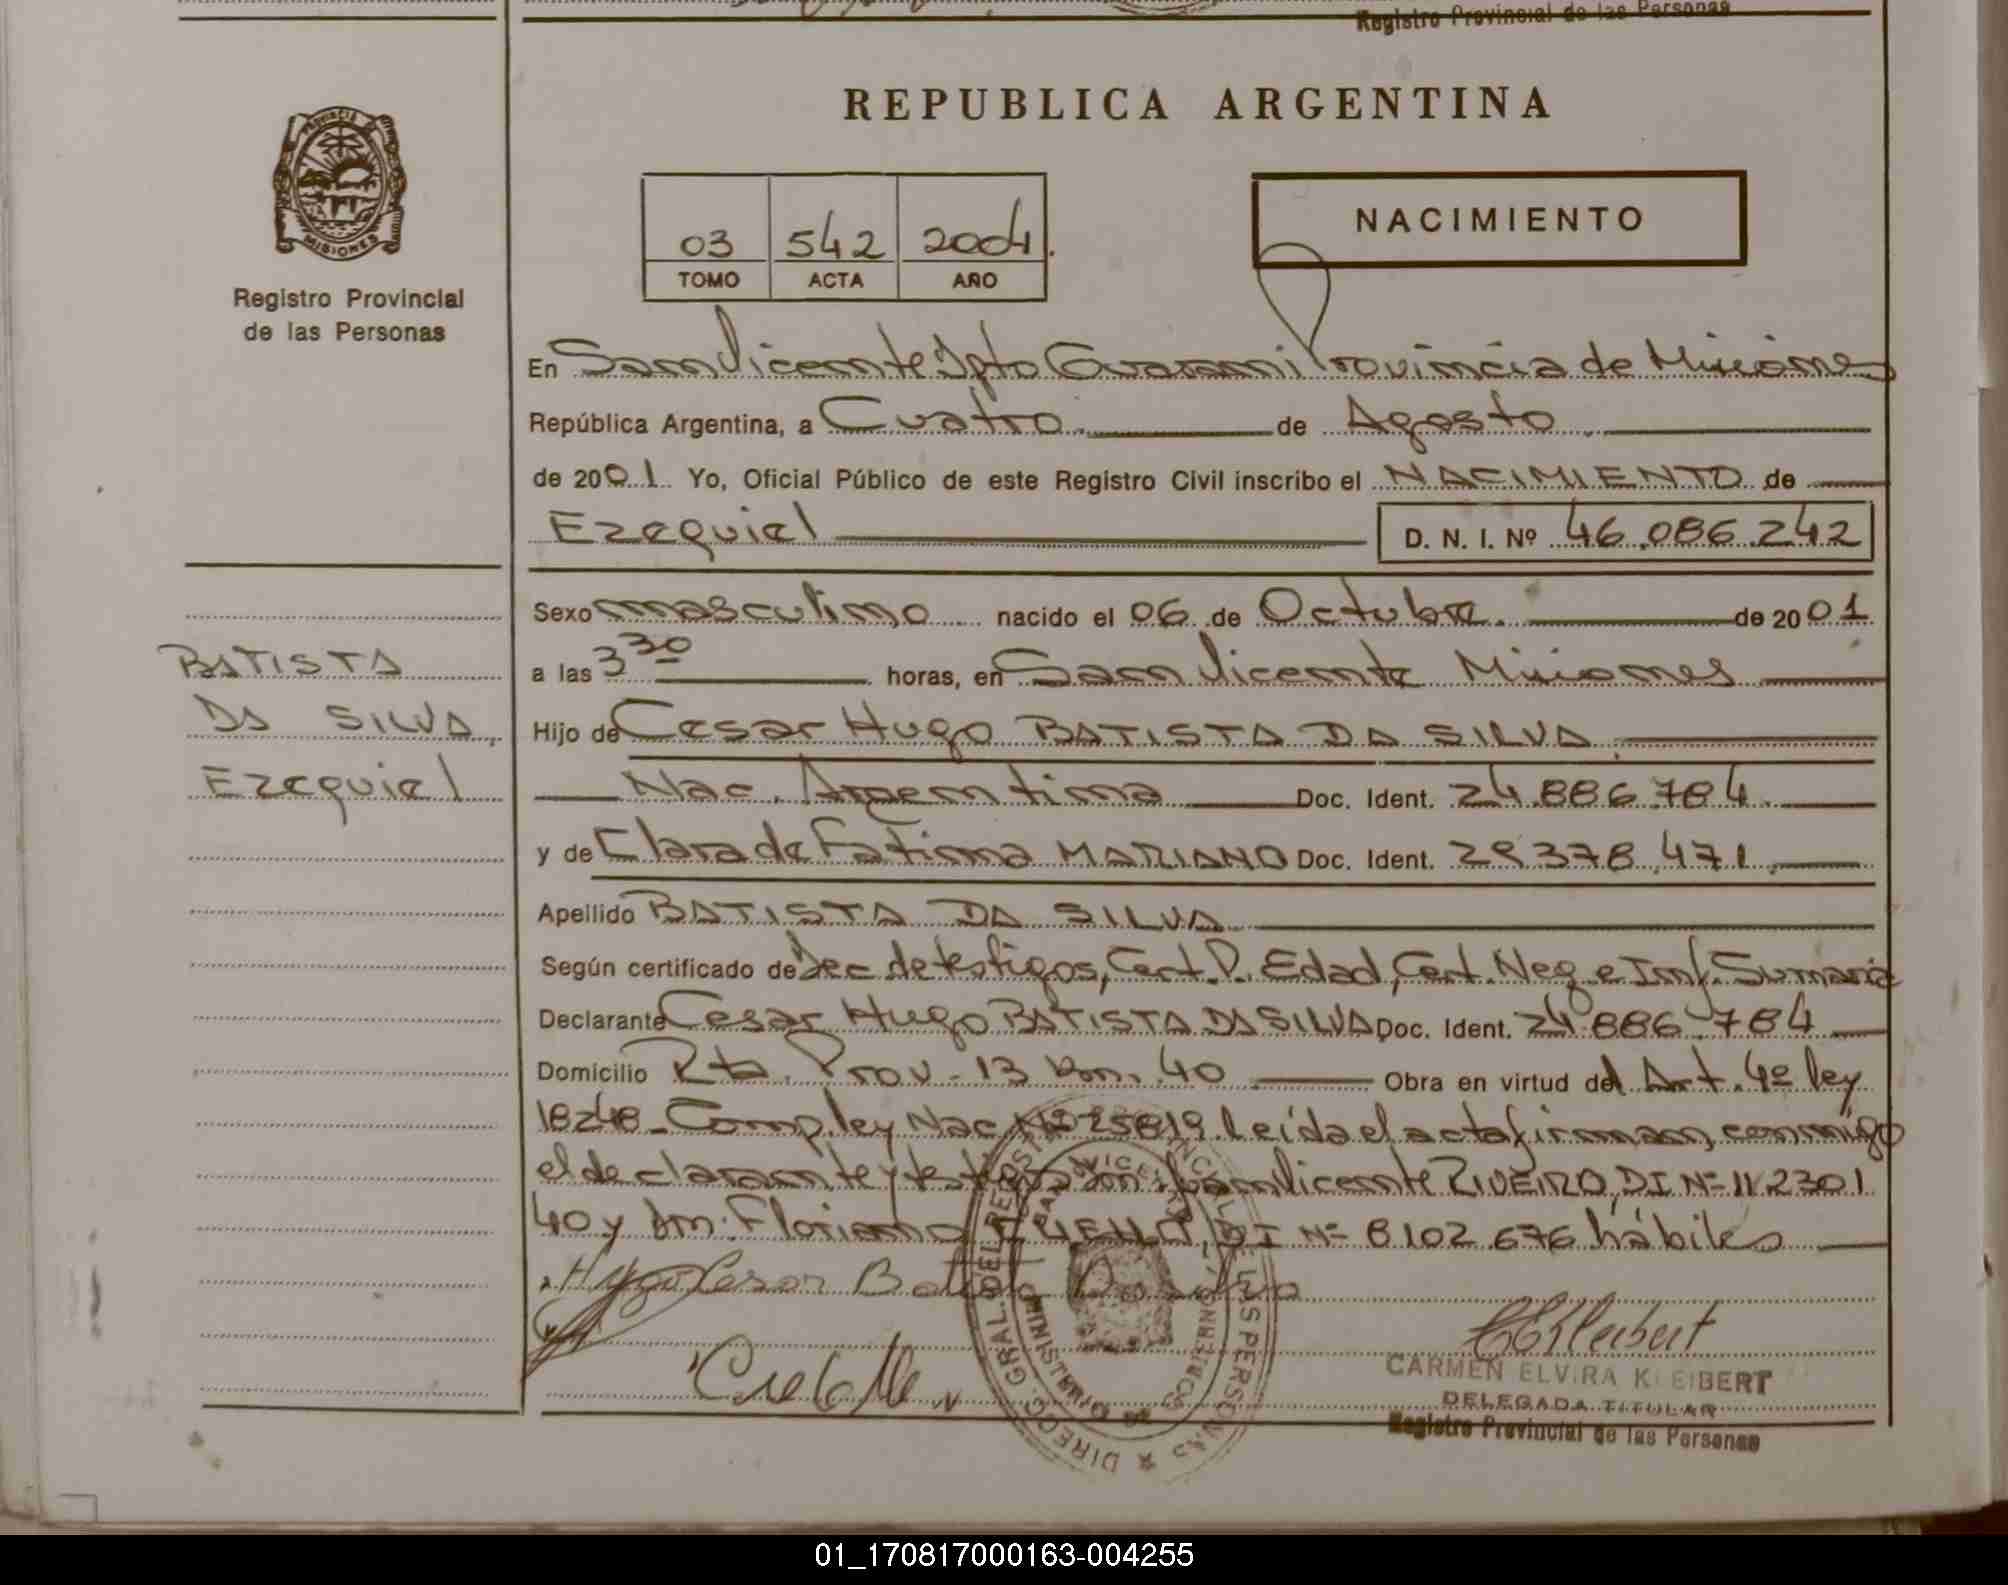 Registro Provincial de las Personas
REPUBLICA ARGENTINA
PROVINCIA DE
MISIONES
Registro Provincial
de las Personas
03 542 2004
TOMO ACTA AÑO
NACIMIENTO
En San Vicente Dpto Guarani Provincia de Misiones
República Argentina, a Cuatro de Agosto
de 2001 Yo, Oficial Público de este Registro Civil inscribo el NACIMIENTO de
Ezequiel D. N. I. Nº 46.086.242
Sexo masculino nacido el 06 de Octubre de 2001
a las 3 30 horas, en San Vicente Misiones
Hijo de Cesar Hugo BATISTA DA SILVA
Nac. Argentina Doc. Ident. 24.886.784
y de Clara de Fatima MARIANO Doc. Ident. 29.378.471
Apellido BATISTA DA SILVA
Según certificado de Dec de testigos, Cert. P. Edad, Cert. Neg e Inf. Sumaria
Declarante Cesar Hugo BATISTA DA SILVA Doc. Ident. 24.886.784
Domicilio Rta. Prov. 13 Km. 40 Obra en virtud del Art. 4º ley
18248 - Comp. ley Nac Nº 25819. Leída el acta firman, conmigo
el declarante y testigos don: Juan Vicente RIVEIRO, DI Nº 112301
40 y don: Floriano DI Nº 8102676 hábiles
BATISTA
DA SILVA,
Ezequiel
Hugo Cesar Batista Da Silva
CARMEN ELVIRA KLEIBERT
DELEGADA TITULAR
Registro Provincial de las Personas
DIREC. GRAL. DEL REGIST PROVINCIAL DE LAS PERSONAS
SAN VICENTE
MINISTERIO DE GOBIERNO
01_170817000163-004255